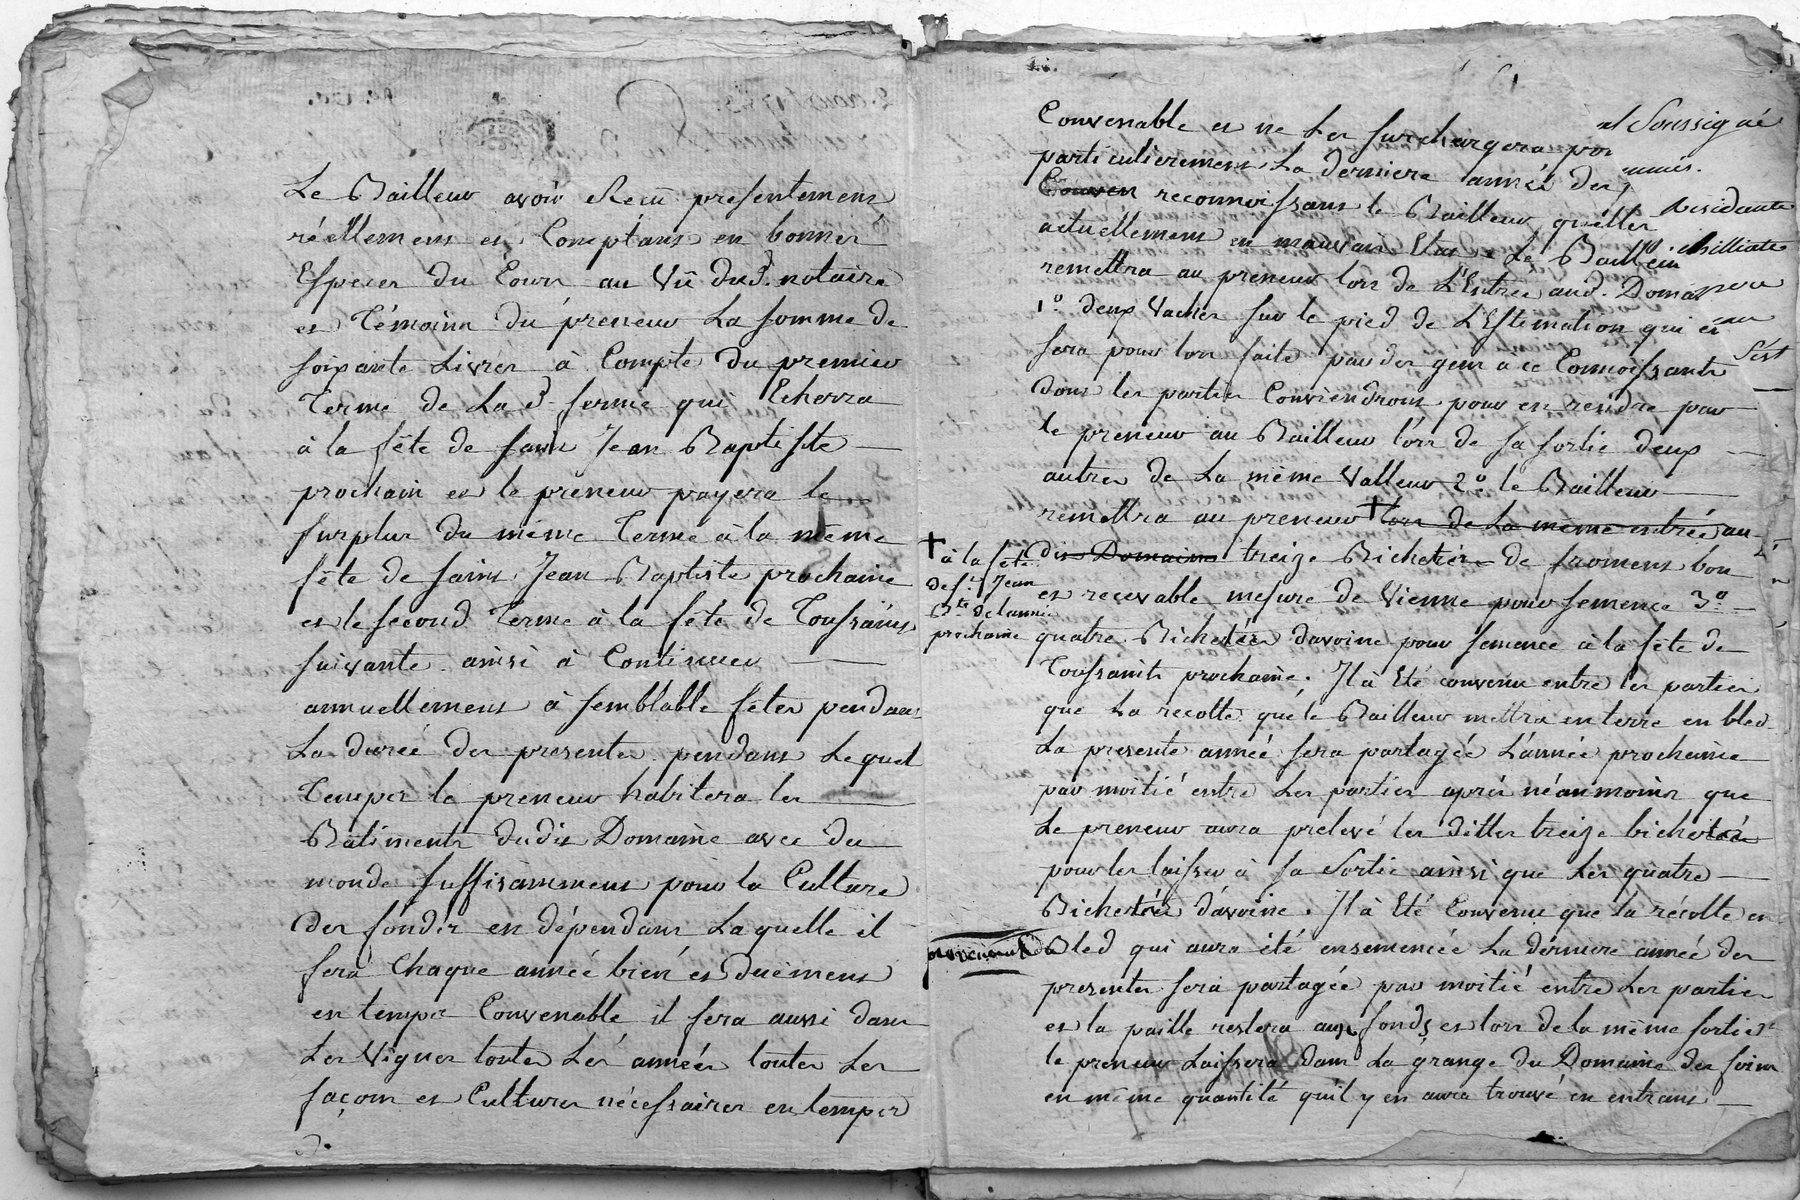 Le Bailleur avoir Recû presentement
réellement et Comptant en bonnes
Especes du Cours au Vû dud. notaire
et Témoins du preneur La somme de
soixante Livres à Compte du premier
Terme de La d. ferme qui Echerra
à la fête de saint Jean Baptiste
prochain et le preneur payera le
surplus du même Terme à la même
fête de saint Jean Baptiste prochaine
et le second Terme à la fête de Toussaints
suivante ainsi à Continuer
annuellement à semblable fêtes pendant
La durée des presentes pendant Lequel
Temps le preneur habitera les
Batiments dudit Domaine avec du
monde suffisamment pour la Culture
Des fonds en dépendant Laquelle il
fera Chaque année bien et Duement
en temps Convenable il fera aussi dans
Les Vignes toutes Les années toutes Les
façons et Cultures nécessaires en temps
Convenable et ne Les surchargera pas
particulierement La derniere année des
Conven reconnoissant le Bailleur qu'elles
actuellement en mauvais Etat. Le Bailleur
remettra au preneur lors de L'Entrée aud. Domaine
1.° deux Vaches sur le pied de L'Estimation qui en
sera pour lors faite par des gens a ce Connoissants
Dont les parties Conviendront pour en rendre par
le preneur au Bailleur lors de sa sortie deux
autres de La même Valleur 2.° le Bailleur
remettra au preneur † lors de La même entrée au
dit Domaine treize Bicherées de froment bon
† à la fête
de s.t Jean
B.te de l'année
prochaine
et recevable mesure de Vienne pour semence 3.°
quatre Bicherées davoine pour semence à la fête de
Toussaints prochaine. Il à Eté convenu entre les parties
que La recolte que le Bailleur mettra en terre en bled
La presente année sera partagée L'année prochaine
par moitié entre Les parties après néanmoins que
Le preneur aura prelevé les dittes treize bicherées
pour les laisser à sa Sortie ainsi que Les quatre
Bicherées d'avoine. Il à Eté Convenu que la récolte en
Bled qui aura été ensemencée La derniere année des
presentes sera partagée par moitié entre Les parties
et la paille restera aux fonds et lors de la même sortie
le preneur Laissera Dans La grange du Domaine des foins
en même quantité qu'il y en aura trouvé en entrant
Soussigné
Residante